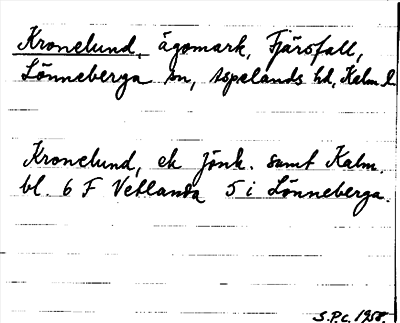 Kronelund, ägomark, Fjärsfall,
Lönneberga sn, Aspelands hd, Kalm. l.
Kronelund, ek Jönk. samt Kalm.
bl. 6 F Vetlanda 5 i Lönneberga.
S.P.C. 1958.